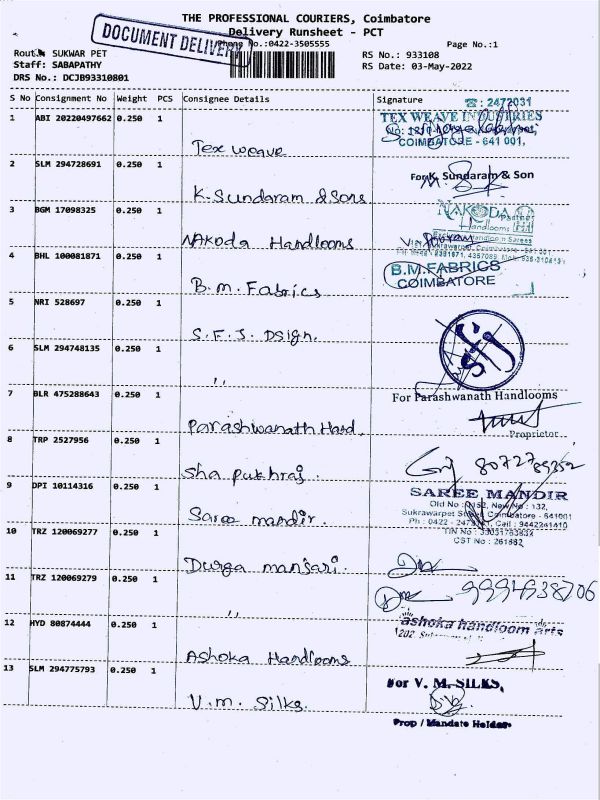 THE PROFESSIONAL COURIERS, Coimbatore
DOCUMENT DELIVERY
Delivery Runsheet - PCT
Phone No.:0422-3505555
Page No.:1
Route SUKWAR PET
RS No.: 933108
Staff: SABAPATHY
RS Date: 03-May-2022
DRS No.: DCJB93310801
S No Consignment No Weight PCS Consignee Details Signature
☎: 2472031
1 ABI 20220497662 0.250 1
TEX WEAVE INDUSTRIES
COIMBATORE - 641 001.
Tex weave
2 SLM 294728691 0.250 1
For K. Sundaram & Son
K. Sundaram & Sons
3 BGM 17098325 0.250 1
NAKODA
Handlooms
NAKoda Handlooms
4 BHL 100081871 0.250 1
B.M.FABRICS
COIMBATORE
B.m. Fabrics
5 NRI 528697 0.250 1
S.F.J. Dsign.
sfj
6 SLM 294748135 0.250 1
,,
7 BLR 475288643 0.250 1
For Parashwanath Handlooms
Parashwanath Hand.
Proprietor
8 TRP 2527956 0.250 1
Sha pukhraj.
9 DPI 10114316 0.250 1
SAREE MANDIR
Sukrawarpet Street Coimbatore - 641001
CST No : 261882
Saree mandir.
10 TRZ 120069277 0.250 1
Durga manjari.
11 TRZ 120069279 0.250 1
,,
12 HYD 80874444 0.250 1
ashoka handloom arts
Ashoka Handlooms
13 SLM 294775793 0.250 1
For V. M. SILKS,
V.m. Silks.
Prop / Mandate Holder